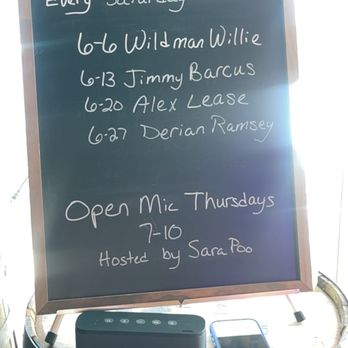 Every Saturday
6-6 Wildman Willie
6-13 Jimmy Barcus
6-20 Alex Lease
6-27 Derian Ramsey
Open Mic Thursdays
7-10
Hosted by Sara Poo